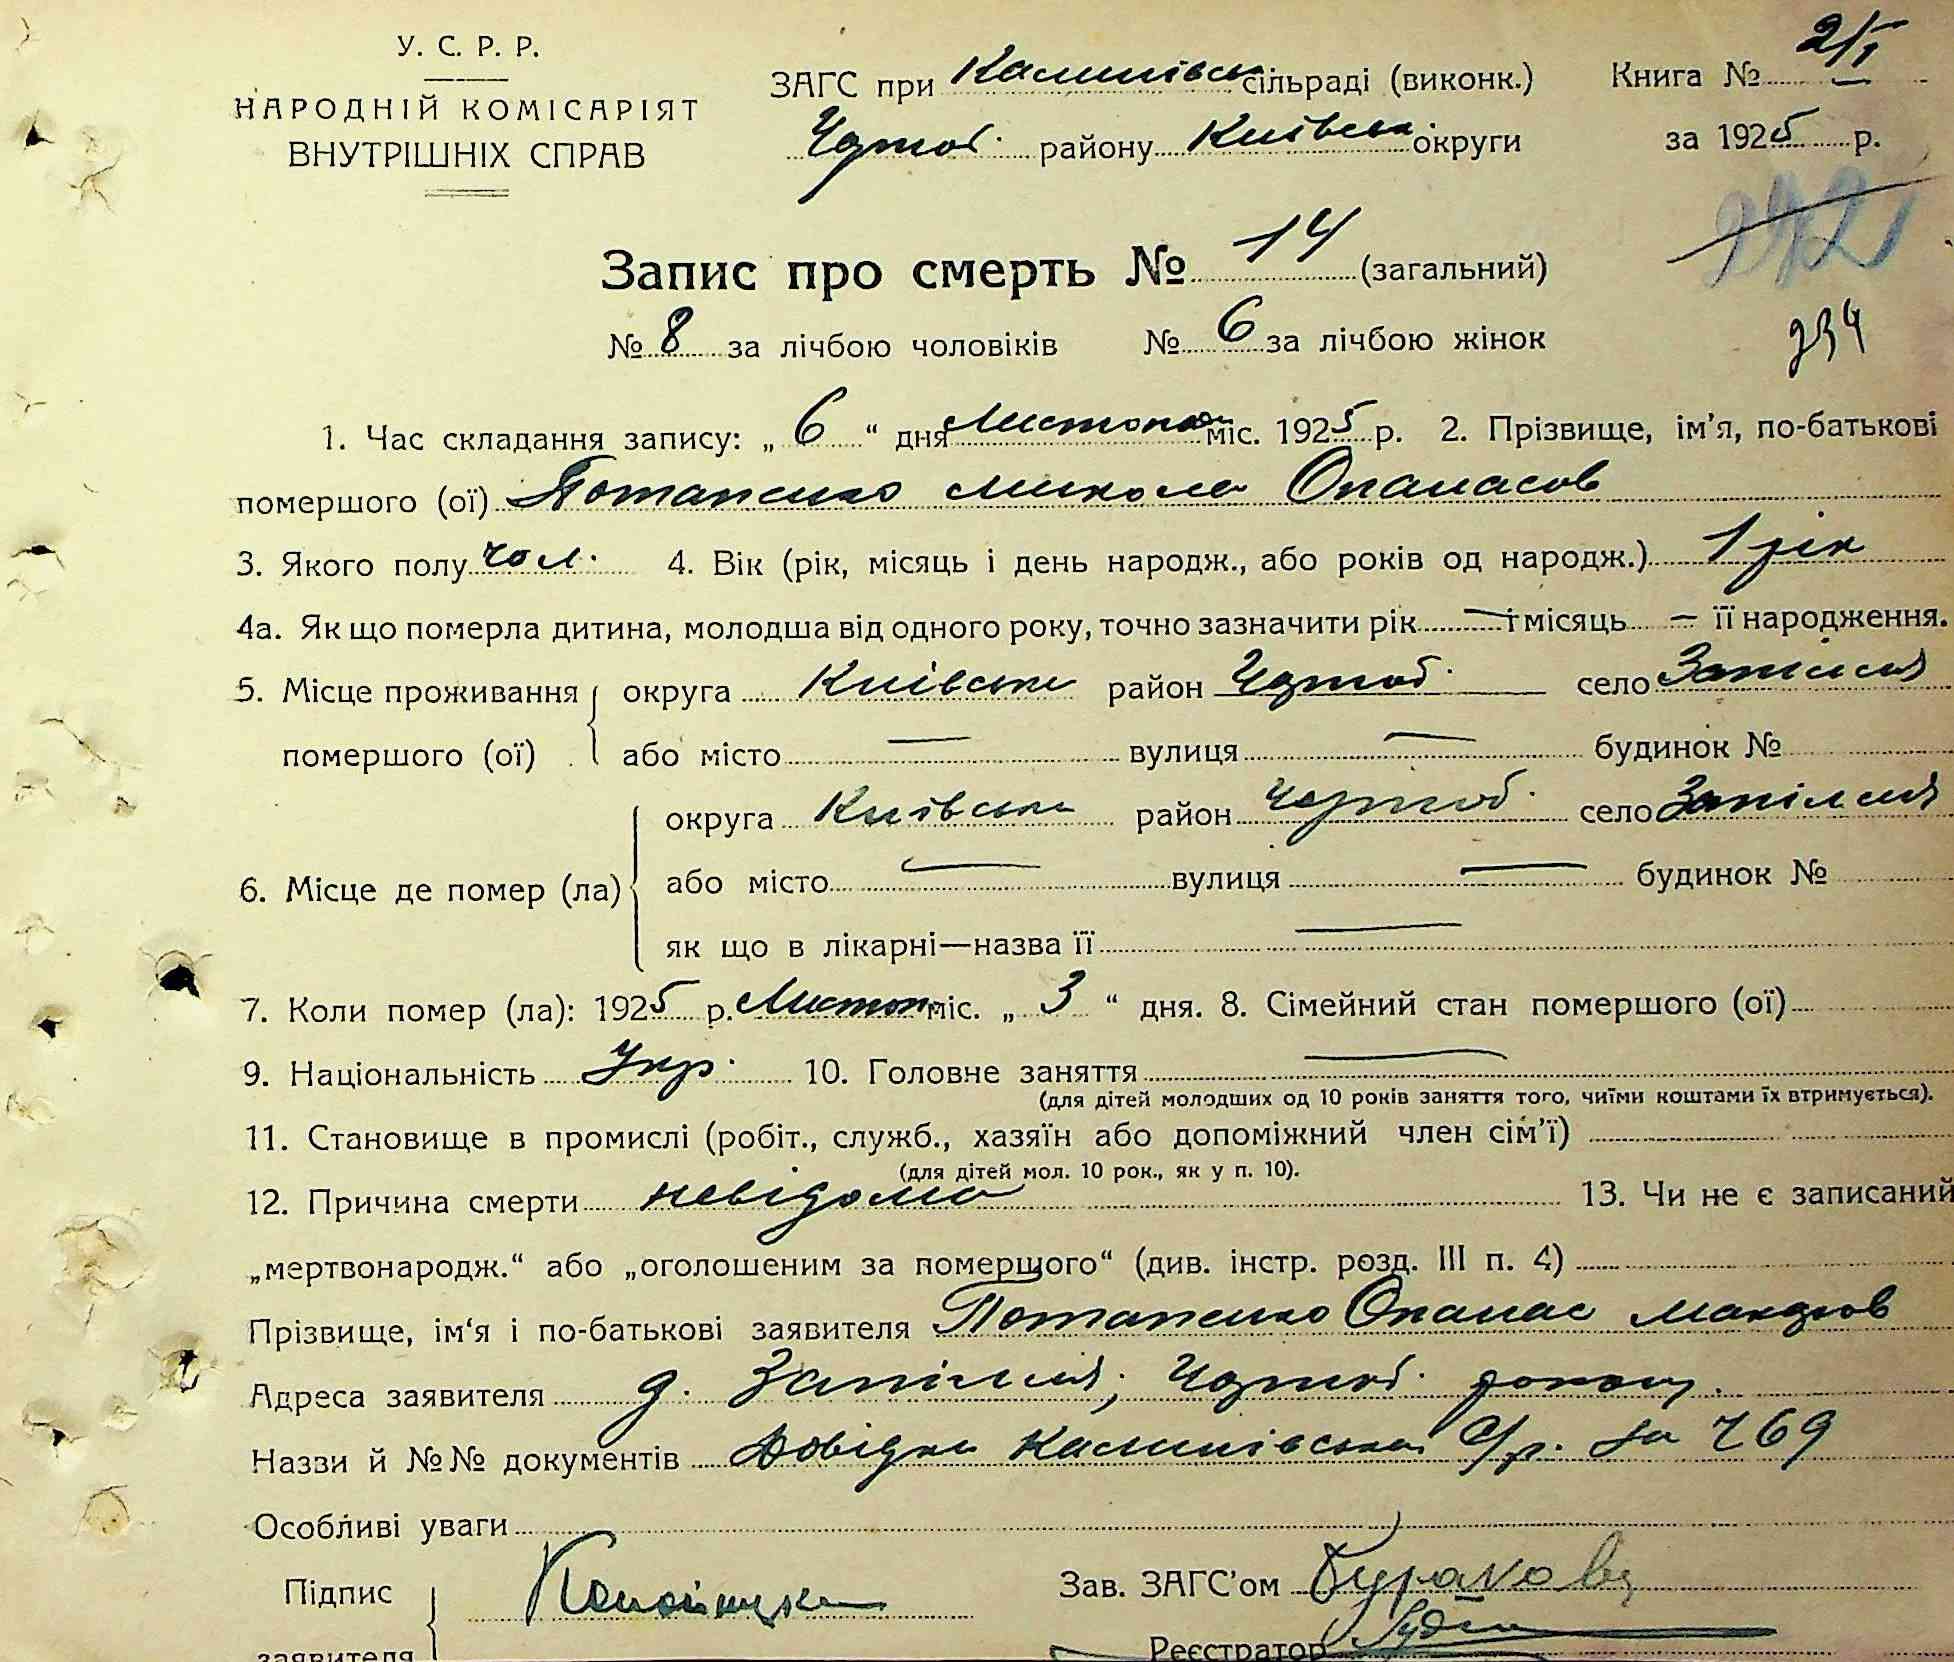 У. С. Р. Р.
НАРОДНІЙ КОМІСАРІЯТ
ВНУТРІШНІХ СПРАВ
ЗАГС при Калинівськ сільраді (виконк.)
району Київськ. округи
Книга № 2/I
за 1925 р.
Запис про смерть № 14 (загальний)
242
№ 8 за лічбою чоловіків № 6 за лічбою жінок
234
1. Час складання запису: „ 6 “ дня Листопада міс. 1925 р. 2. Прізвище, ім'я, по-батькові
помершого (ої) Потапенко Микола Опанасов
3. Якого полу чол. 4. Вік (рік, місяць і день народж., або років од народж.) 1 рік
4а. Як що померла дитина, молодша від одного року, точно зазначити рік — і місяць — її народження.
5. Місце проживання округа Київська район село Запілля
помершого (ої) або місто — вулиця — будинок №
округа Київська район село Запілля
6. Місце де помер (ла) або місто — вулиця — будинок №
як що в лікарні—назва її —
7. Коли помер (ла): 1925 р. Листоп міс. „ 3 “ дня. 8. Сімейний стан помершого (ої)
9. Національність Укр. 10. Головне заняття —
(для дітей молодших од 10 років заняття того, чиїми коштами їх втримується).
11. Становище в промислі (робіт., служб., хазяїн або допоміжний член сім'ї)
(для дітей мол. 10 рок., як у п. 10).
12. Причина смерти невідома 13. Чи не є записаний
„мертвонародж.“ або „оголошеним за померщого“ (див. інстр. розд. III п. 4)
Прізвище, ім‘я і по-батькові заявителя Потапенко Опанас
Адреса заявителя д. Запілля,
Назви й №№ документів Довідка Калинівська С/р. за 769
Особливі уваги
Підпис
заявителя
Зав. ЗАГС'ом
Реєстратор